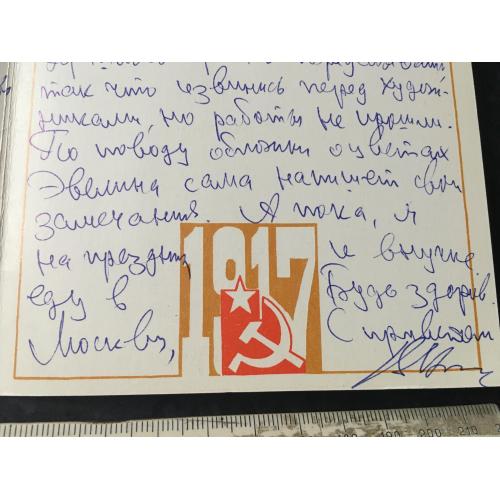 так что извинись перед худож-
никами, но работы не прошли.
По поводу обложки о цветах
Эвелина сама напишет свои
замечания. А пока, я
на праздник и внучке
еду в Будь здоров
Москву, С приветом
1917
190 200 210